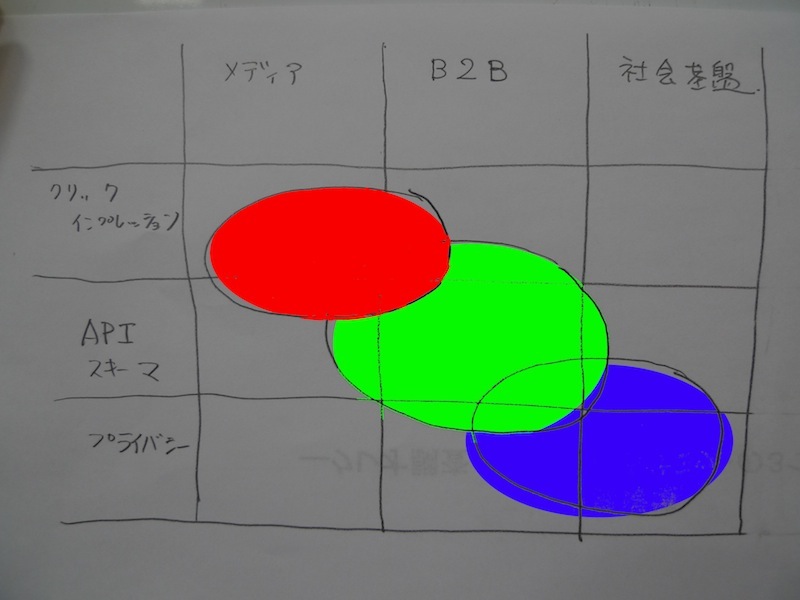 メディア
B2B
社会基盤
クリック
インプレーション
API
スキーマ
プライバシー